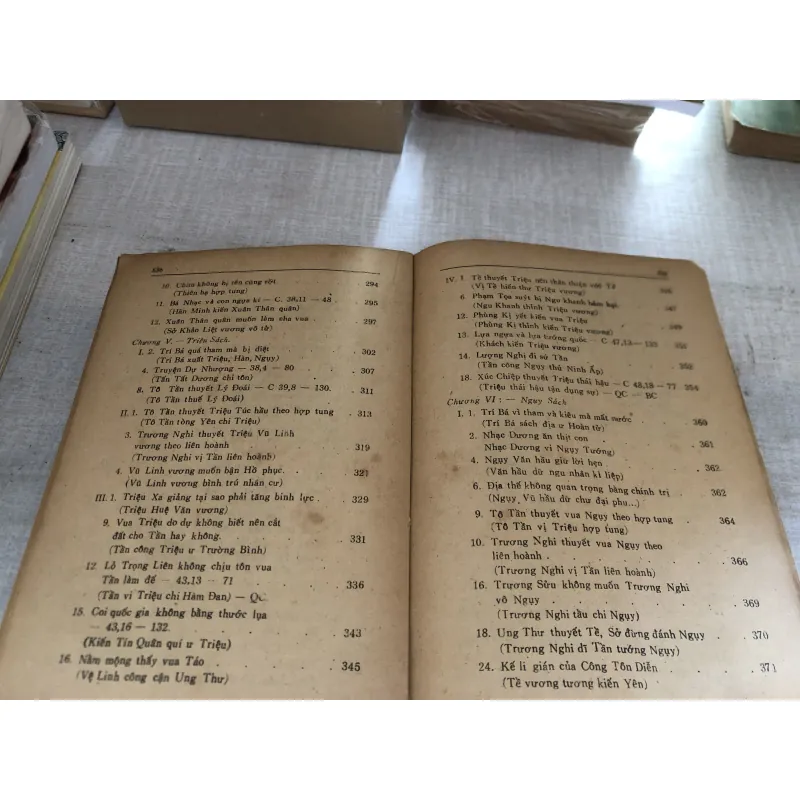 436
10. Chim không bị tên cũng rớt . 294
(Thiên hạ hợp tung)
11. Bá Nhạc và con ngựa kí — C. 39,11 — 48 . 295
(Hãn Minh kiến Xuân Thân quân)
13. Xuân Thân quân muốn làm cha vua . 297
(Sở Khảo Liệt vương vô tử)
Chương V. — Triệu Sách.
I. 2. Trí Bá quá tham mà bị diệt 302
(Trí Bá xuất Triệu, Hàn, Ngụy)
4. Truyện Dự Nhượng — 38,4 — 80 307
(Tấn Tất Dương chi tôn)
8. Tô Tần thuyết Lý Đoái — C 39,8 — 130. 311
(Tô Tần thuế Lý Đoái)
II. 1. Tô Tần thuyết Triệu Túc hầu theo hợp tung 313
(Tô Tần tòng Yên chi Triệu)
3. Trương Nghi thuyết Triệu Vũ Linh
vương theo liên hoành 319
(Trương Nghi vị Tần liên hoành)
4. Vũ Linh vương muốn bận Hồ phục. . 321
(Vũ Linh vương bình trú nhàn cư)
III. 1. Triệu Xa giảng tại sao phải tăng binh lực . 329
(Triệu Huệ Văn vương)
9. Vua Triệu do dự không biết nên cắt
đất cho Tần hay không. . . . 331
(Tần công Triệu ư Trường Bình)
12. Lỗ Trọng Liên không chịu tôn vua
Tần làm đế — 43,13 — 71 . . 336
(Tần vi Triệu chi Hàm Đan) — QC
15. Coi quốc gia không bằng thước lụa
— 43,16 — 132. . . . . 343
(Kiến Tín Quân quí ư Triệu)
16. Nằm mộng thấy vua Táo . . 345
(Vệ Linh công cận Ung Thư)
IV. 1. Tề thuyết Triệu nên thân thuộc với Tề
(Vị Tề hiến thư Triệu vương)
6 Phạm Tọa suýt bị Ngu khanh hãm hại. 347
(Ngu Khanh thỉnh Triệu vương)
12. Phùng Kị yết kiến vua Triệu . 349
(Phùng Kị thỉnh kiến Triệu vương)
13. Lụa ngựa và tướng quốc — C 47,13— 133 352
(Khách kiến Triệu vương)
14. Lượng Nghị đi sứ Tần 353
(Tần công Ngụy thủ Ninh Ấp)
18. Xúc Chiệp thuyết Triệu thái hậu — C 48,18 — 77 354
(Triệu thái hậu tận dụng sự) — QC — BC
Chương VI : — Ngụy Sách
I. 1. Trí Bá vì tham và kiêu mà mất nước 360
(Trí Bá sách địa ư Hoàn tử)
2. Nhạc Dương ăn thịt con . . 361
Nhạc Dương vi Ngụy Tướng)
4. Ngụy Văn hầu giữ lời hẹn . . 362
(Văn hầu dữ ngu nhân kì liệp)
6. Địa thế không quan trọng bằng chính trị . 362
(Ngụy Vũ hầu dữ chư đại phu...)
9. Tô Tần thuyết vua Ngụy theo hợp tung . 364
(Tô Tần vị Triệu hợp tung)
10. Trương Nghi thuyết vua Ngụy theo
liên hoành . . . . . 366
(Trương Nghi vị Tần liên hoành)
16. Trương Sửu không muốn Trương Nghi
vô Ngụy . . . . . 369
(Trương Nghi tẩu chi Ngụy)
18. Ung Thư thuyết Tề, Sở đừng đánh Ngụy . 370
(Trương Nghi dĩ Tần tướng Ngụy)
24. Kế li gián của Công Tôn Diễn . . . 371
(Tề vương tương kiến Yên)